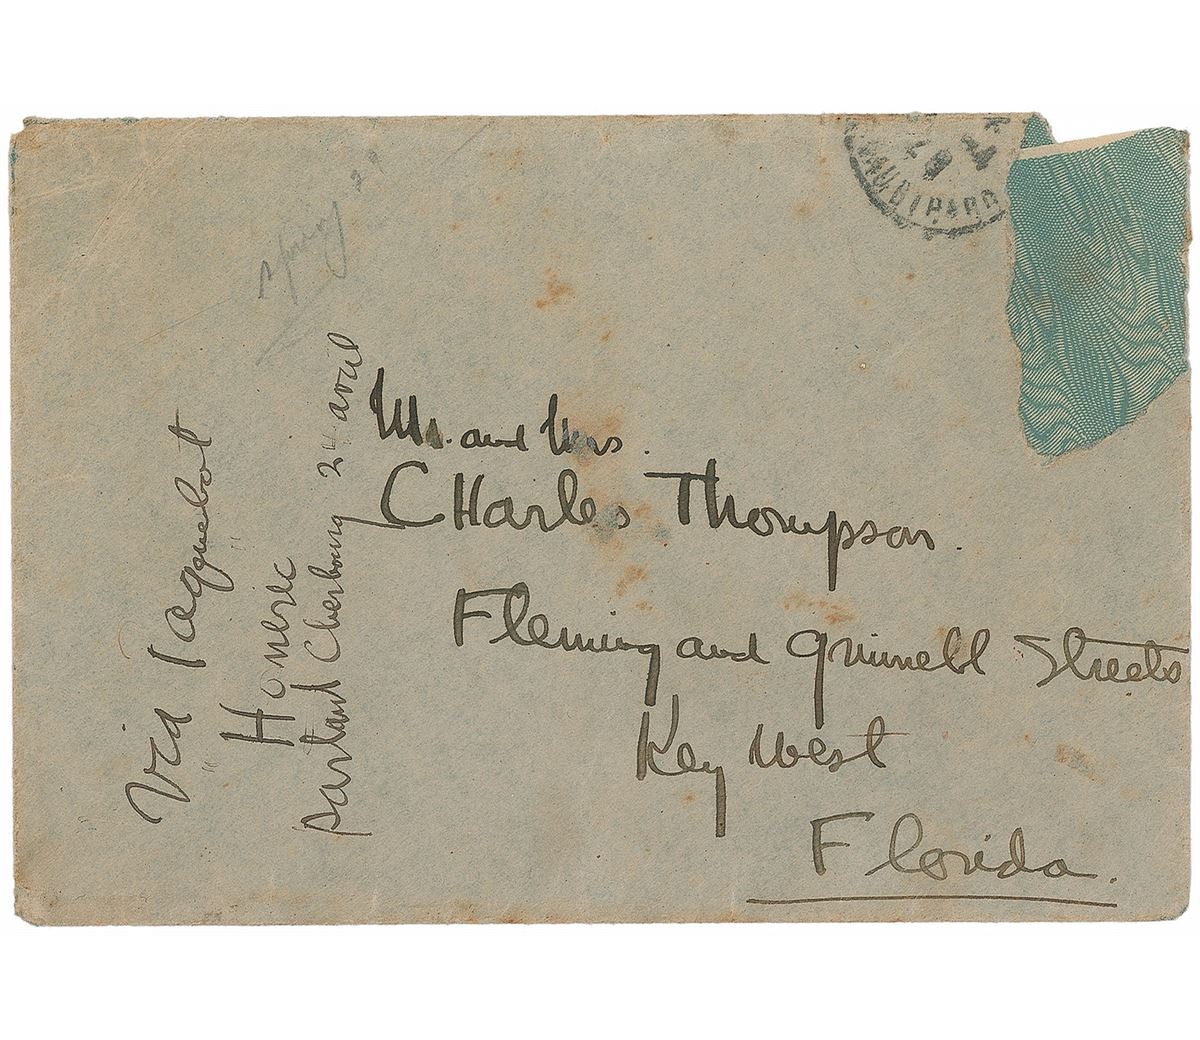 Mr. and Mrs.
CHarles Thompson.
Fleming and Grinnell Streets
Key West
Florida.
Via Paquebot
"Homeric"
partant Cherbourg 24 avril
spring